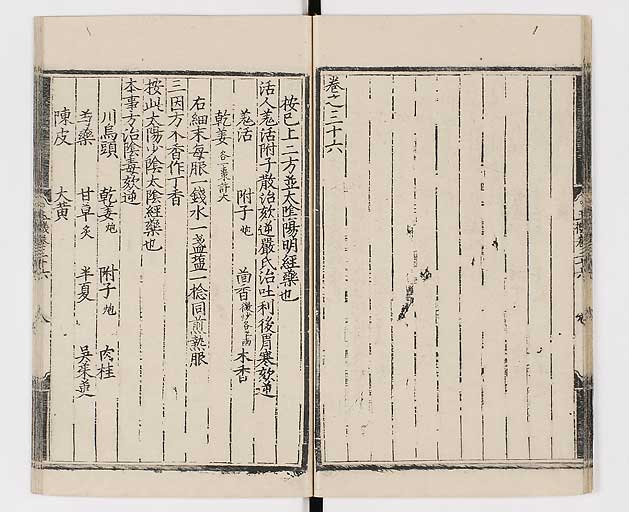 卷之三十六
按已上二方並太陰陽明經藥也
活人羗活附子散治欬逆嚴氏治吐利後胃寒欬逆
羗活 附子炮 茴香微炒各半兩 木香
乾姜各一棗許大
右細末每服一錢水一盞塩一捻同煎熱服
三因方木香作丁香
按此太陽少陰太陰經藥也
本事方治陰毒欬逆
川烏頭 乾姜炮 附子炮 肉桂
芍藥 甘草炙 半夏 吳茱萸
陳皮 大黄